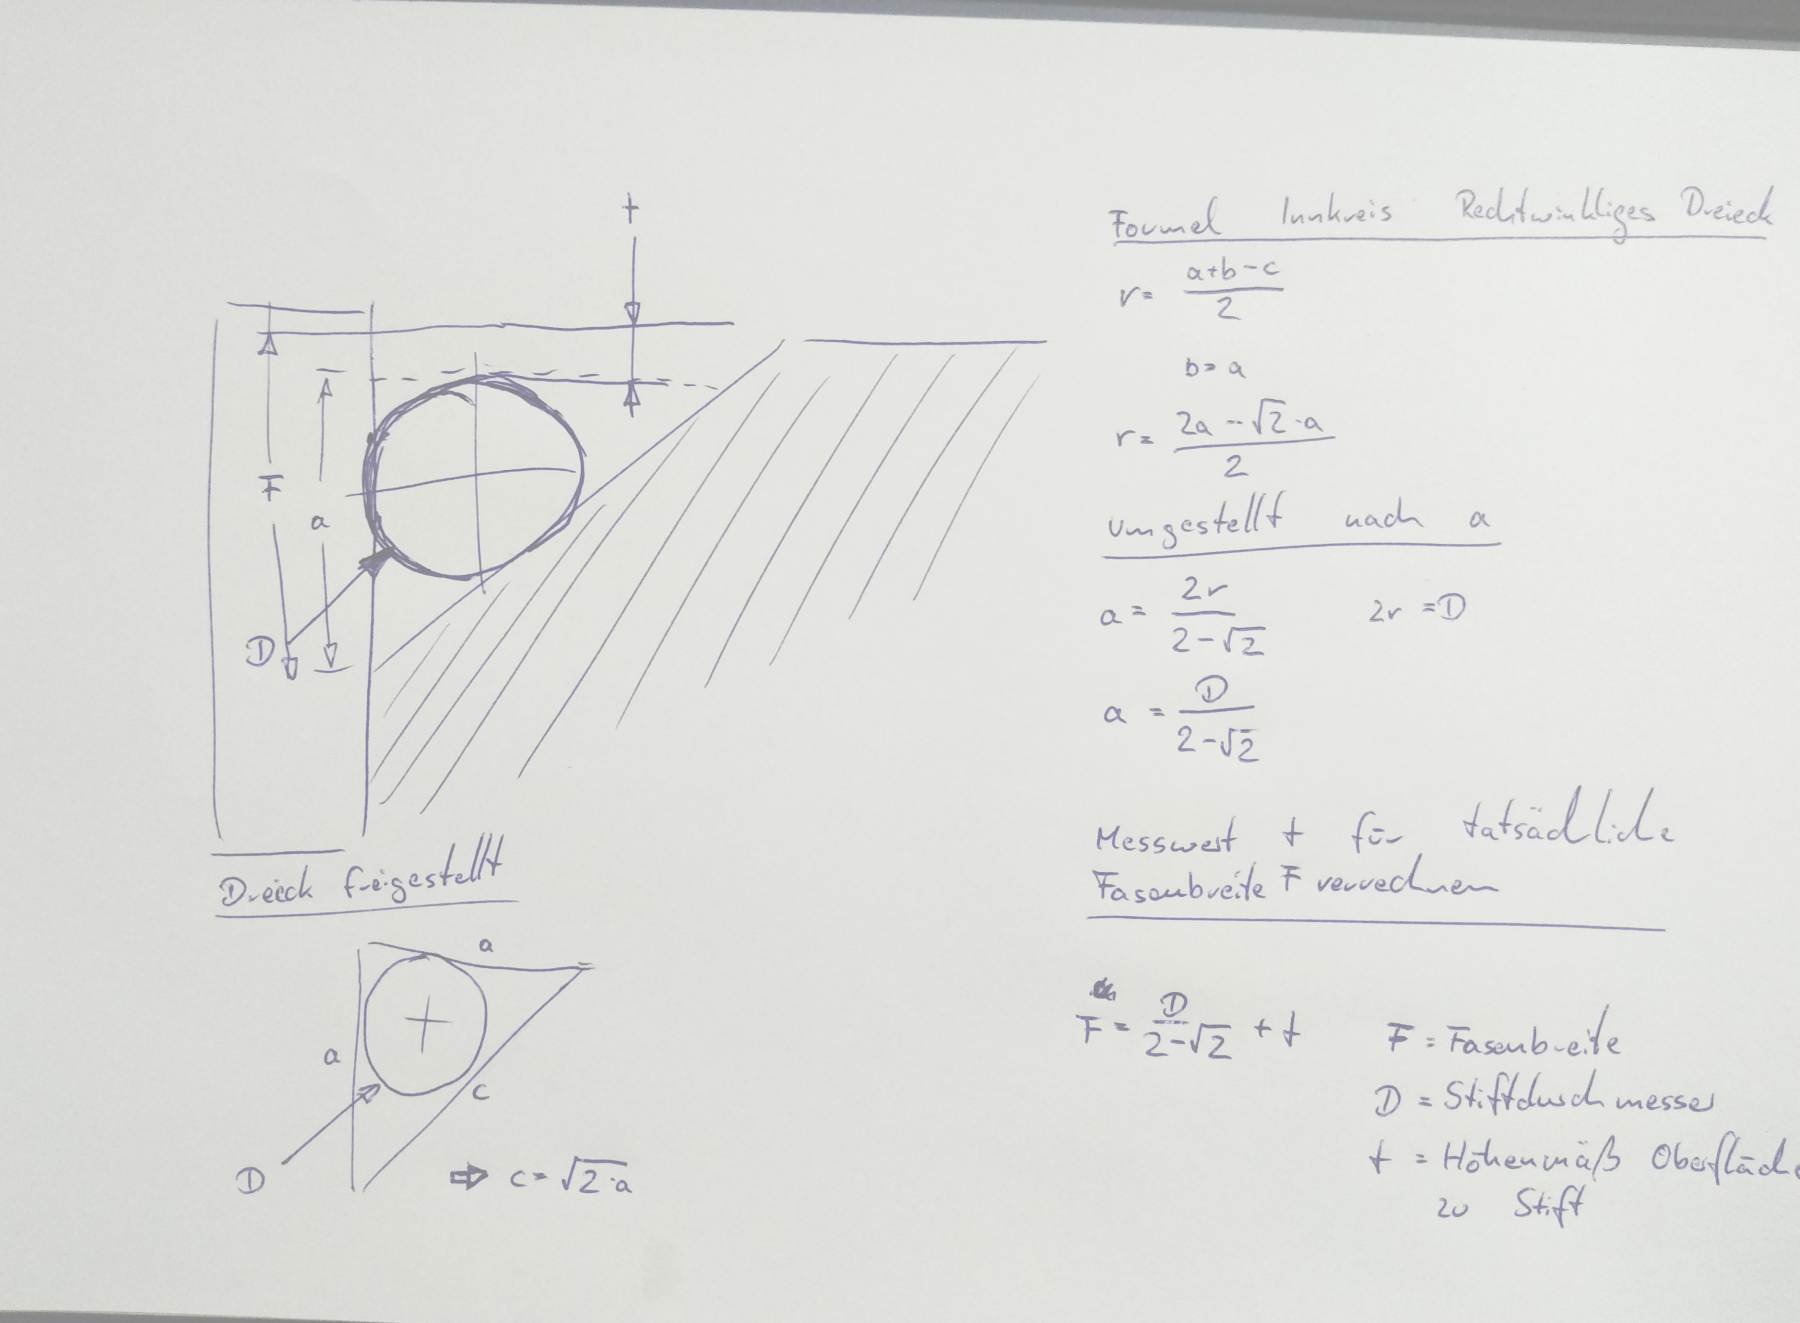 t
F
a
D
Dreieck freigestellt
a
a
c
D
⇒ c = √2·a
Formel Innkreis Rechtwinkliges Dreieck
r = (a+b-c)/2
b = a
r = (2a - √2·a)/2
umgestellt nach a
a = 2r/(2-√2) 2r = D
a = D/(2-√2)
Messwert t für tatsächliche
Fasenbreite F verrechnen
F = D/(2-√2) + t
F = Fasenbreite
D = Stiftdurchmesser
t = Höhenmäß Oberfläche
zu Stift